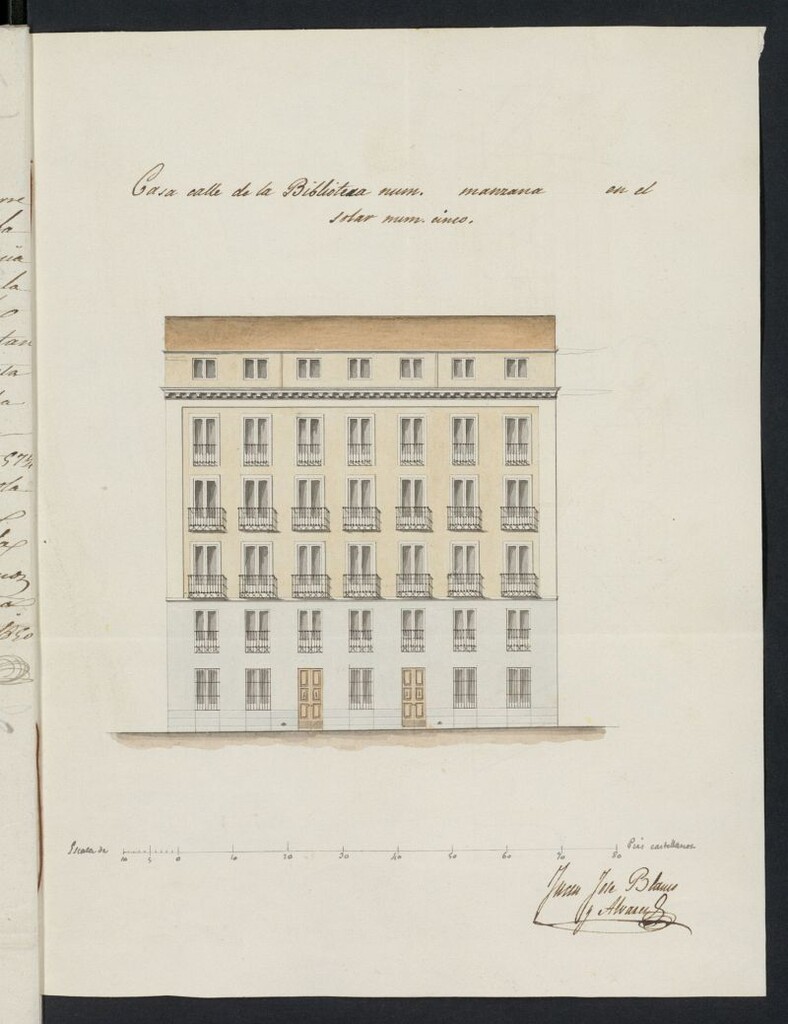 Casa calle de la Biblioteca num. manzana en el
solar num. cinco.
la
la
tan
la
Escala de 10 5 0 10 20 30 40 50 60 70 80 Pies castellanos
Juan Jose Blanco
y Alvarez